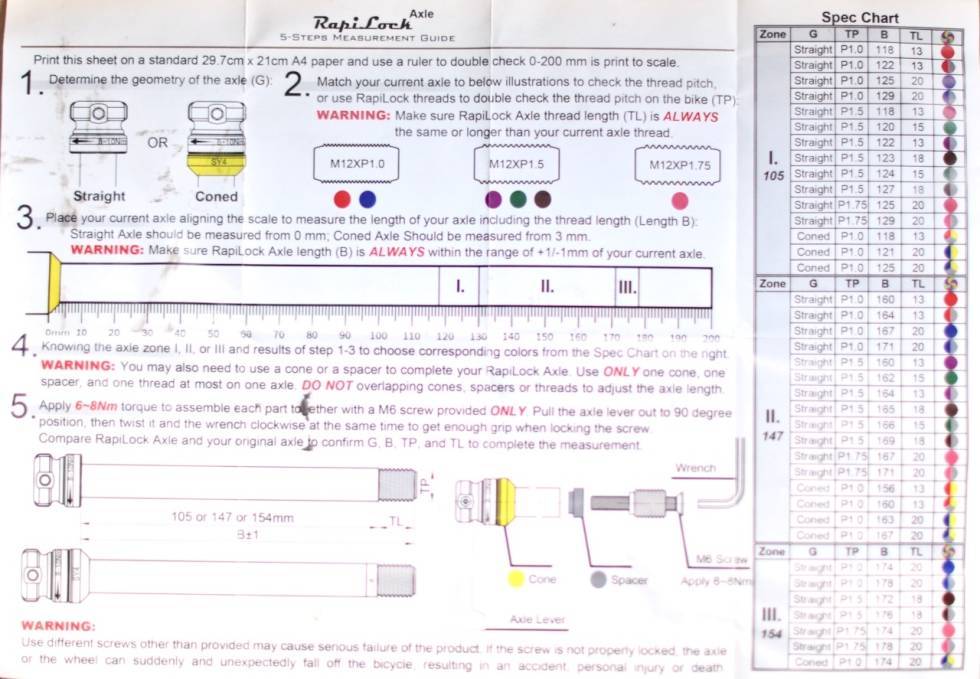 RapiLock Axle
5-STEPS MEASUREMENT GUIDE
Print this sheet on a standard 29.7cm x 21cm A4 paper and use a ruler to double check 0-200 mm is print to scale.
1. Determine the geometry of the axle (G):
OR
SY4
Straight Coned
2. Match your current axle to below illustrations to check the thread pitch,
or use RapiLock threads to double check the thread pitch on the bike (TP)
WARNING: Make sure RapiLock Axle thread length (TL) is ALWAYS
the same or longer than your current axle thread.
M12XP1.0 M12XP1.5 M12XP1.75
3. Place your current axle aligning the scale to measure the length of your axle including the thread length (Length B):
Straight Axle should be measured from 0 mm; Coned Axle Should be measured from 3 mm.
WARNING: Make sure RapiLock Axle length (B) is ALWAYS within the range of +1/-1mm of your current axle.
I. II. III.
0mm 10 20 30 40 50 60 70 80 90 100 110 120 130 140 150 160 170 180 190 200
4. Knowing the axle zone I, II, or III and results of step 1-3 to choose corresponding colors from the Spec Chart on the right.
WARNING: You may also need to use a cone or a spacer to complete your RapiLock Axle. Use ONLY one cone, one
spacer, and one thread at most on one axle. DO NOT overlapping cones, spacers or threads to adjust the axle length.
5. Apply 6~8Nm torque to assemble each part together with a M6 screw provided ONLY. Pull the axle lever out to 90 degree
position, then twist it and the wrench clockwise at the same time to get enough grip when locking the screw.
Compare RapiLock Axle and your original axle to confirm G, B, TP, and TL to complete the measurement.
TP
105 or 147 or 154mm TL
B±1
SY4
Wrench
M6 Screw
Cone Spacer Apply 6~8Nm
Axle Lever
WARNING:
Use different screws other than provided may cause serious failure of the product. If the screw is not properly locked, the axle
or the wheel can suddenly and unexpectedly fall off the bicycle, resulting in an accident, personal injury or death
Spec Chart
Zone G TP B TL
I.
105
Straight P1.0 118 13
Straight P1.0 122 13
Straight P1.0 125 20
Straight P1.0 129 20
Straight P1.5 118 13
Straight P1.5 120 15
Straight P1.5 122 13
Straight P1.5 123 18
Straight P1.5 124 15
Straight P1.5 127 18
Straight P1.75 125 20
Straight P1.75 129 20
Coned P1.0 118 13
Coned P1.0 121 20
Coned P1.0 125 20
Zone G TP B TL
II.
147
Straight P1.0 160 13
Straight P1.0 164 13
Straight P1.0 167 20
Straight P1.0 171 20
Straight P1.5 160 13
Straight P1.5 162 15
Straight P1.5 164 13
Straight P1.5 165 18
Straight P1.5 166 15
Straight P1.5 169 18
Straight P1.75 167 20
Straight P1.75 171 20
Coned P1.0 156 13
Coned P1.0 160 13
Coned P1.0 163 20
Coned P1.0 167 20
Zone G TP B TL
III.
154
Straight P1.0 174 20
Straight P1.0 178 20
Straight P1.5 172 18
Straight P1.5 176 18
Straight P1.75 174 20
Straight P1.75 178 20
Coned P1.0 174 20